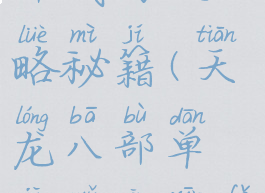 lüè mì jí tiān
略秘籍(天
lóng bā bù dān
龙八部单